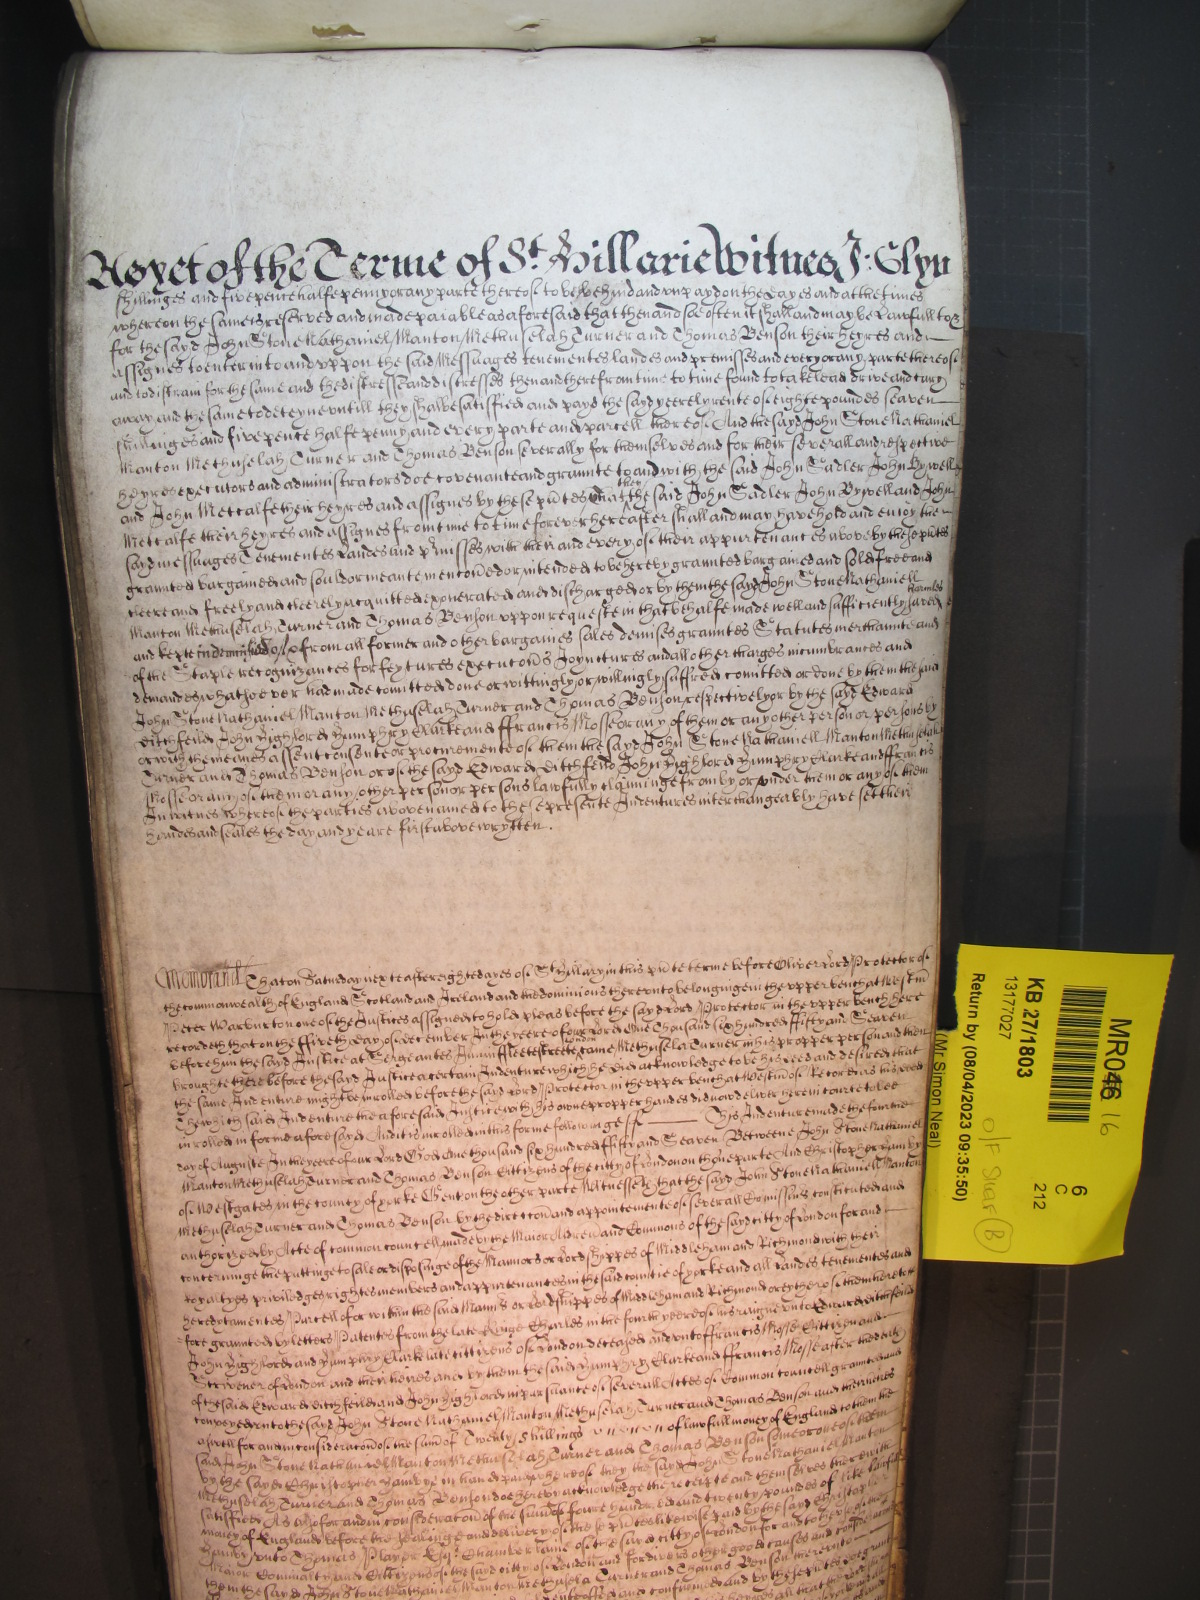 As yet of the Terme of St. Hillarie Witnes J: Glyn
shillinges and five pence halfe penny or any parte thereof to be behind and unpayd on the dayes and at the times
whereon the same is reserved and made paiable as aforesaid that then and soe often it shall and may be lawfull to &
for the sayd John Stone Nathaniel Manton Methuselah Turner and Thomas Benson their heyres and
assignes to enter into and uppon the said Messuages tenementes landes and premisses and every or any parte thereof
and to distrain for the same and the distresse and distresses then and there from time to time found to take lead drive and cary
away and the same to deteyne untill they shalbe satisfied and payd the sayd yeerely rente of eighte poundes seaven
shillinges and five pence halfe penny and every parte and parcell thereof And the sayd John Stone Nathaniel
Manton Methuselah Turner and Thomas Benson severally for themselves and for their severall and respective
heyres executors and administrators doe covenante and graunte to and with the said John Sadler John Bywell
and John Mettcalfe their heyres and assignes by these pntes that they the said John Sadler John Bywell and John
Metcalfe their heyres and assignes from time to time for ever hereafter shall and may have hold and enioy the
sayd messuages Tenementes Landes and pmisses with their and every of their appurtenances above by these pntes
graunted bargained and sould or meante mentoned or intended to be hereby graunted bargained and sold free and
cleere and freely and cleerely acquitted exonerated and discharged or by them the sayd John Stone Nathaniell
Manton Methuselah Turner and Thomas Benson uppon requeste in that behalfe made well and sufficiently saved harmles
and kepte indemnified of & from all former and other bargaines sales demises grauntes Statutes merchaunte and
of the Staple recognizances forfeytures executons Joynctures and all other charges incumbrances and
demandes whatsoever had made comitted done or wittingly or willingly suffred comitted or done by them the said
John Stone Nathaniel Manton Methuselah Turner and Thomas Benson respectively or by the sayd Edward
Ditchfeild John Highlord Humphry Clarke and ffrancis Mosse or any of them or any other person or persons by
or with the meanes assent consente or procuremente of them the sayd John Stone Nathaniell Manton Methuselah
Turner and Thomas Benson or of the sayd Edward Ditchfeild John Highlord Humphry Clarke and ffrancis
Mosse or any of them or any other person or persons lawfully clayminge from by or under them or any of them
In witnes whereof the parties abovenamed to these presente Indentures interchangeably have sett their
handes and seales the day and yeare first above wrytten.
Memorand That on Saturday nexte after eighte dayes of St Hillary in this pnte terme before Oliver Lord Protector of
the commonwealth of England Scotland and Ireland and the dominions thereunto belonginge in the upper bench at Westm
Peter Warburton one of the Justices assigned to hold pleas before the sayd Lord Protector in the upper bench here
recorded that on the ffiveth day of december In the yeere of our Lord One Thousand six hundred ffifty and Seaven
before him the said Justice at Sergeantes Inn in ffleetestreete London came Methusela Turner in his propper person and then
broughte there before the said Justice a certain Indenture which he did acknowledge to be his deed and desired that
the same Indenture might be inrolled before the said Lord Protector in the upper bench at Westm of Record as his deed
The which said Indenture the aforesaid Justice with his owne propper handes did now deliver here in courte to bee
inrolled in forme aforesayd And it is inrolled in this forme followinge ss This Indenture made the fourteenth
day of Auguste In the yeere of our Lord God one thousand six hundred ffifty and Seaven Betweene John Stone Nathaniel
Manton Methuselah Turner and Thomas Benson Cittizens of the citty of London on thone parte And Christopher
of Westgates in the county of Yorke Gent on the other parte Witnesseth that the sayd John Stone Nathaniell Manton
Methuselah Turner and Thomas Benson by the direccon and appointemente of severall Comissions constituted and
authorized by Acte of common councell made by the Maior Aldren and Commons of the sayd citty of London for and
concerninge the puttinge to sale or disposinge of the Mannors or Lordshippes of Middleham and Richmond with their
royaltyes priviledges rightes members and appurtenances in the said countie of Yorke and all Landes tenementes and
heredytamentes Parcell of or within the said Manns or Lordshippes of Middleham and Richmond or eyther of them hereto
fore graunted by letters Patentes from the late Kinge Charles in the fourth yeere of his raigne unto Edward Ditchfeild
John Highlord and Humphry Clarke late cittizens of London deceased and unto ffrancis Mosse Cittizen and
Scrivener of London and their heires and by them the said Humphry Clarke and ffrancis Mosse after the death
of the said Edward Ditchfeild and John Highlord in pursuance of severall Actes of Common councell graunted and
conveyed unto the sayd John Stone Nathaniel Manton Methuselah Turner and Thomas Benson and their heires
aswell for and in consideracon of the sum of Twenty shillings of lawfull money of England to them the
said John Stone Nathaniel Manton Methuselah Turner and Thomas Benson some or one of them
by the sayd Christopher in hand payd whereof they the sayd John Stone Nathaniel Manton
Methuselah Turner and Thomas Benson doe hereby acknowledge the receipte and themselves therewith
satisfied As also for and in consideracon of the sum of foure hundred and twenty poundes of like lawfull
money of England before the sealinge and delivery of these pntes likewise paid by the sayd Christopher
unto Thomas Player Esqr Chamberlaine of the said citty of London for and to the use of the
Maior Comminalty and Cittizens of the sayd citty of London and for divers other good causes and
them the sayd John Stone Nathaniel Manton Methusela Turner and Thomas Benson
MR046 16
KB 27/1803
13177027
Return by (08/04/2023 09:35:50)
(Mr Simon Neal)
6
C
212
O/F Shelf B